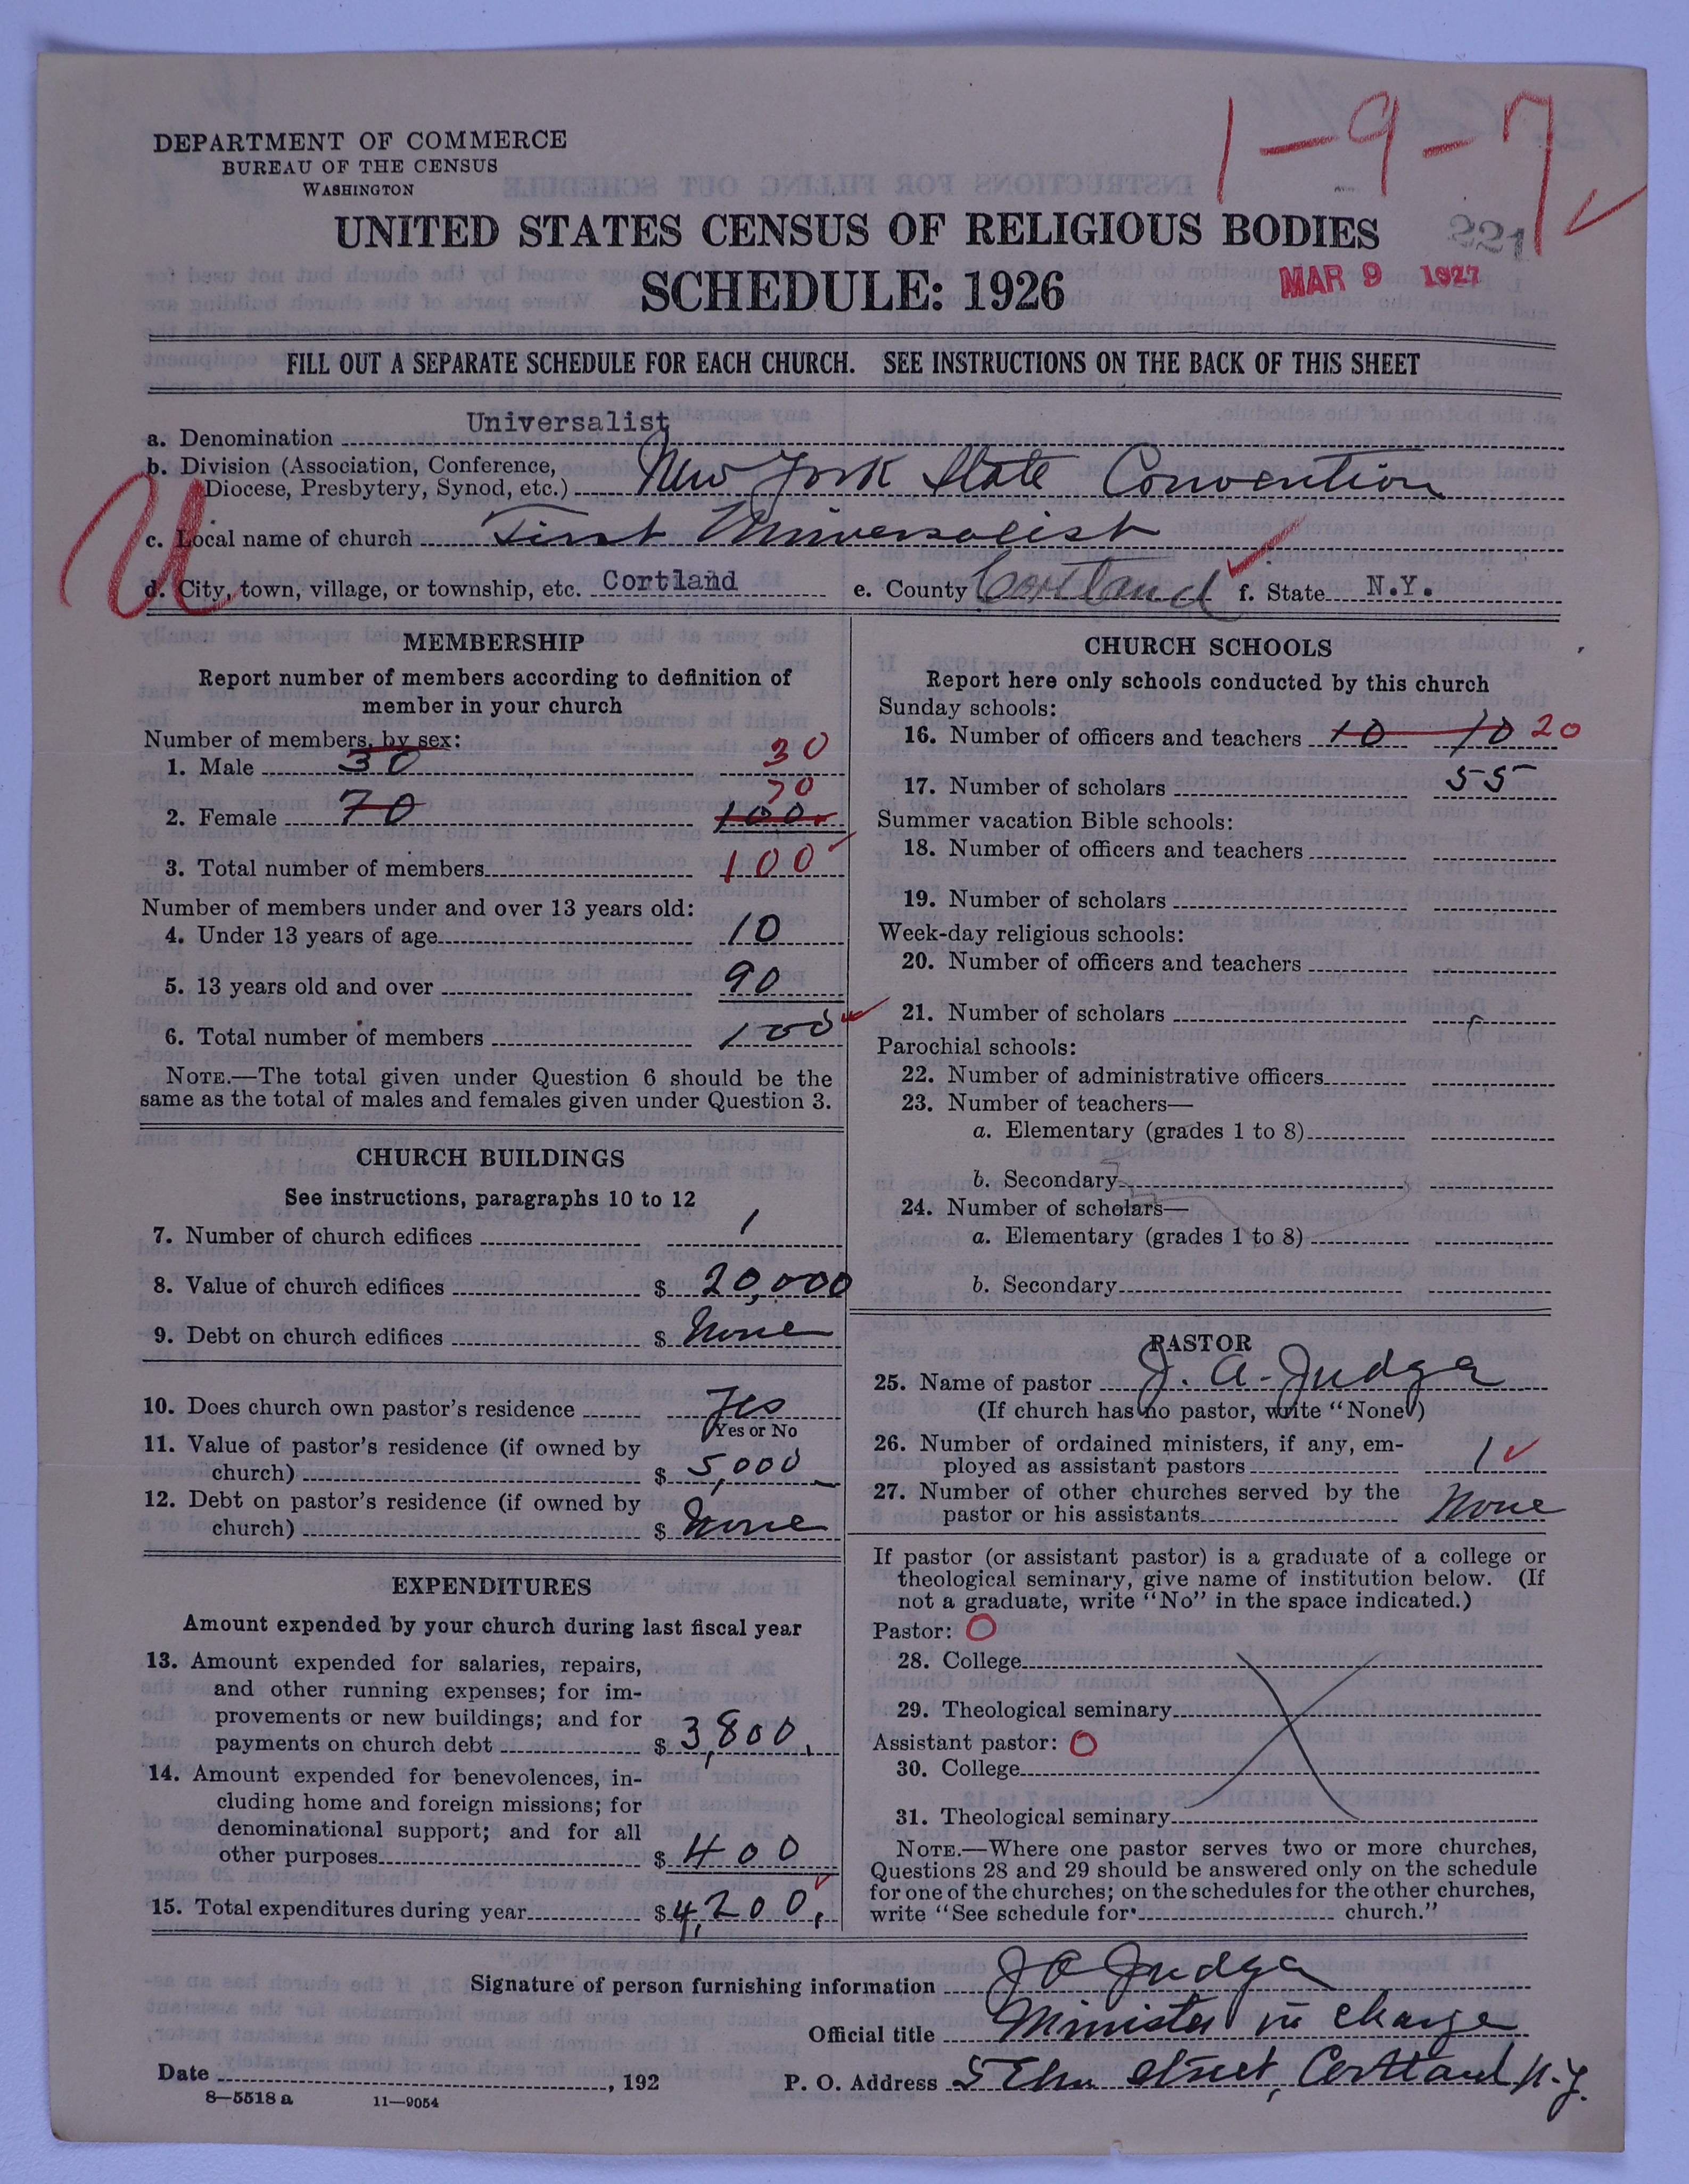 1-9-7
DEPARTMENT OF COMMERCE
BUREAU OF THE CENSUS
WASHINGTON
UNITED STATES CENSUS OF RELIGIOUS BODIES
221
SCHEDULE: 1926
MAR 9 1927
FILL OUT A SEPARATE SCHEDULE FOR EACH CHURCH. SEE INSTRUCTIONS ON THE BACK OF THIS SHEET
a. Denomination Universalist
b. Division (Association, Conference, Diocese, Presbytery, Synod, etc.) New York State Convention
U
c. Local name of church First Universalist
d. City, town, village, or township, etc. Cortland e. County Cortland f. State N.Y.
MEMBERSHIP
Report number of members according to definition of
member in your church
Number of members, by sex:
1. Male 30 30
2. Female 70 100 70
3. Total number of members 100
Number of members under and over 13 years old:
4. Under 13 years of age 10
5. 13 years old and over 90
6. Total number of members 100
NOTE.—The total given under Question 6 should be the
same as the total of males and females given under Question 3.
CHURCH BUILDINGS
See instructions, paragraphs 10 to 12
7. Number of church edifices 1
8. Value of church edifices $ 20,000
9. Debt on church edifices $ None
10. Does church own pastor's residence Yes
Yes or No
11. Value of pastor's residence (if owned by
church) $ 5,000
12. Debt on pastor's residence (if owned by
church) $ None
EXPENDITURES
Amount expended by your church during last fiscal year
13. Amount expended for salaries, repairs,
and other running expenses; for im-
provements or new buildings; and for
payments on church debt $ 3,800.
14. Amount expended for benevolences, in-
cluding home and foreign missions; for
denominational support; and for all
other purposes $ 400
15. Total expenditures during year $ 4,200.
CHURCH SCHOOLS
Report here only schools conducted by this church
Sunday schools:
16. Number of officers and teachers 10 10 20
17. Number of scholars 55
Summer vacation Bible schools:
18. Number of officers and teachers
19. Number of scholars
Week-day religious schools:
20. Number of officers and teachers
21. Number of scholars
Parochial schools:
22. Number of administrative officers
23. Number of teachers—
a. Elementary (grades 1 to 8)
b. Secondary
24. Number of scholars—
a. Elementary (grades 1 to 8)
b. Secondary
PASTOR
25. Name of pastor J. A. Judge
(If church has no pastor, write "None")
26. Number of ordained ministers, if any, em-
ployed as assistant pastors 1
27. Number of other churches served by the
pastor or his assistants None
If pastor (or assistant pastor) is a graduate of a college or
theological seminary, give name of institution below. (If
not a graduate, write "No" in the space indicated.)
Pastor: O
28. College
29. Theological seminary
Assistant pastor: O
30. College
31. Theological seminary
NOTE.—Where one pastor serves two or more churches,
Questions 28 and 29 should be answered only on the schedule
for one of the churches; on the schedules for the other churches,
write "See schedule for church."
Signature of person furnishing information J A Judge
Official title Minister in charge
Date , 192 P. O. Address 5 Elm Street, Cortland, N.Y.
8—5518 a 11—9054